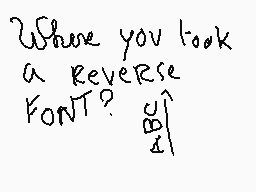 Where you took
a Reverse
FONT?
ABC